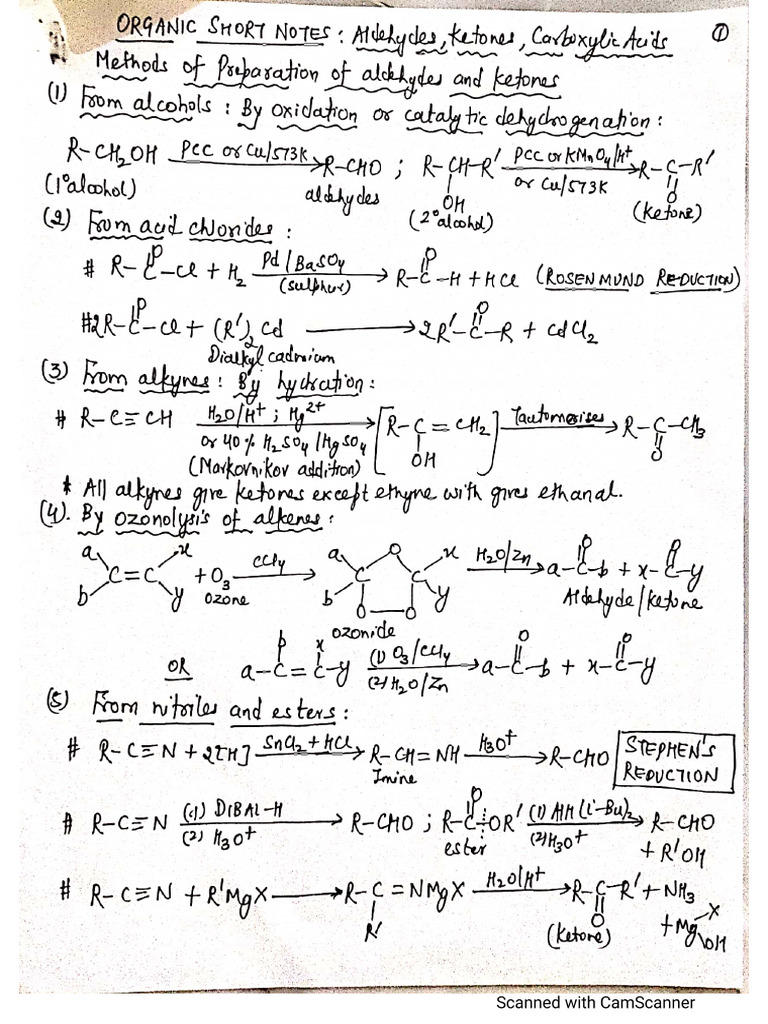 ORGANIC SHORT NOTES: Aldehydes, Ketones, Carboxylic Acids ①
Methods of Preparation of aldehydes and ketones
(1) From alcohols: By oxidation or catalytic dehydrogenation:
R-CH2OH PCC or Cu/573K → R-CHO ; R-CH-R' PCC or KMnO4/H+ or Cu/573K → R-C-R'
OH O
(1° alcohol) aldehydes (2° alcohol) (Ketone)
(2) From acid chlorides:
# R-C-Cl + H2 Pd/BaSO4 (sulphur) → R-C-H + HCl (ROSENMUND REDUCTION)
#2R-C-Cl + (R')2Cd → 2R'-C-R + CdCl2
Dialkyl cadmium
(3) From alkynes: By hydration:
# R-C≡CH H2O/H+ ; Hg2+ → [R-C=CH2] Tautomerises → R-C-CH3
or 40% H2SO4/HgSO4 OH O
(Markovnikov addition)
* All alkynes give ketones except ethyne with gives ethanal.
(4). By ozonolysis of alkenes:
a x a O x O O
C=C + O3 CCl4 → C C H2O/Zn → a-C-b + x-C-y
b y ozone b O-O y Aldehyde/ketone
ozonide
OR b x O O
a-C=C-y (1) O3/CCl4 (2) H2O/Zn → a-C-b + x-C-y
(5) From nitriles and esters:
# R-C≡N + 2[H] SnCl2+HCl → R-CH=NH H3O+ → R-CHO STEPHEN'S REDUCTION
Imine
# R-C≡N (1) DIBAL-H (2) H3O+ → R-CHO ; R-C-OR' (1) AlH(i-Bu)2 (2) H3O+ → R-CHO
ester + R'OH
# R-C≡N + R'MgX → R-C=NMgX H2O/H+ → R-C-R' + NH3
R' O + Mg X OH
(ketone)
Scanned with CamScanner